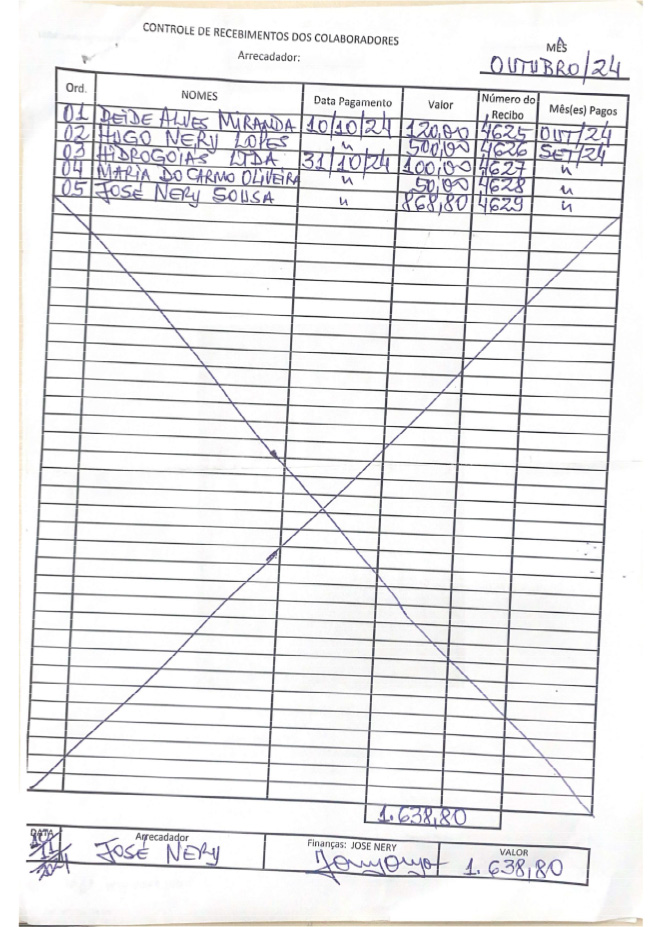 CONTROLE DE RECEBIMENTOS DOS COLABORADORES
Arrecadador:
MÊS
OUTUBRO/24
Ord. NOMES Data Pagamento Valor Número do Recibo Mês(es) Pagos
01 DEIDE ALVES MIRANDA 10/10/24 120,00 4625 OUT/24
02 HUGO NERY LOPES " 500,00 4626 SET/24
03 HIDROGOIAS LTDA 31/10/24 100,00 4627 "
04 MARIA DO CARMO OLIVEIRA " 50,00 4628 "
05 JOSÉ NERY SOUSA " 868,80 4629 "
1.638,80
DATA Arrecadador Finanças: JOSE NERY VALOR
JOSÉ NERY 1.638,80